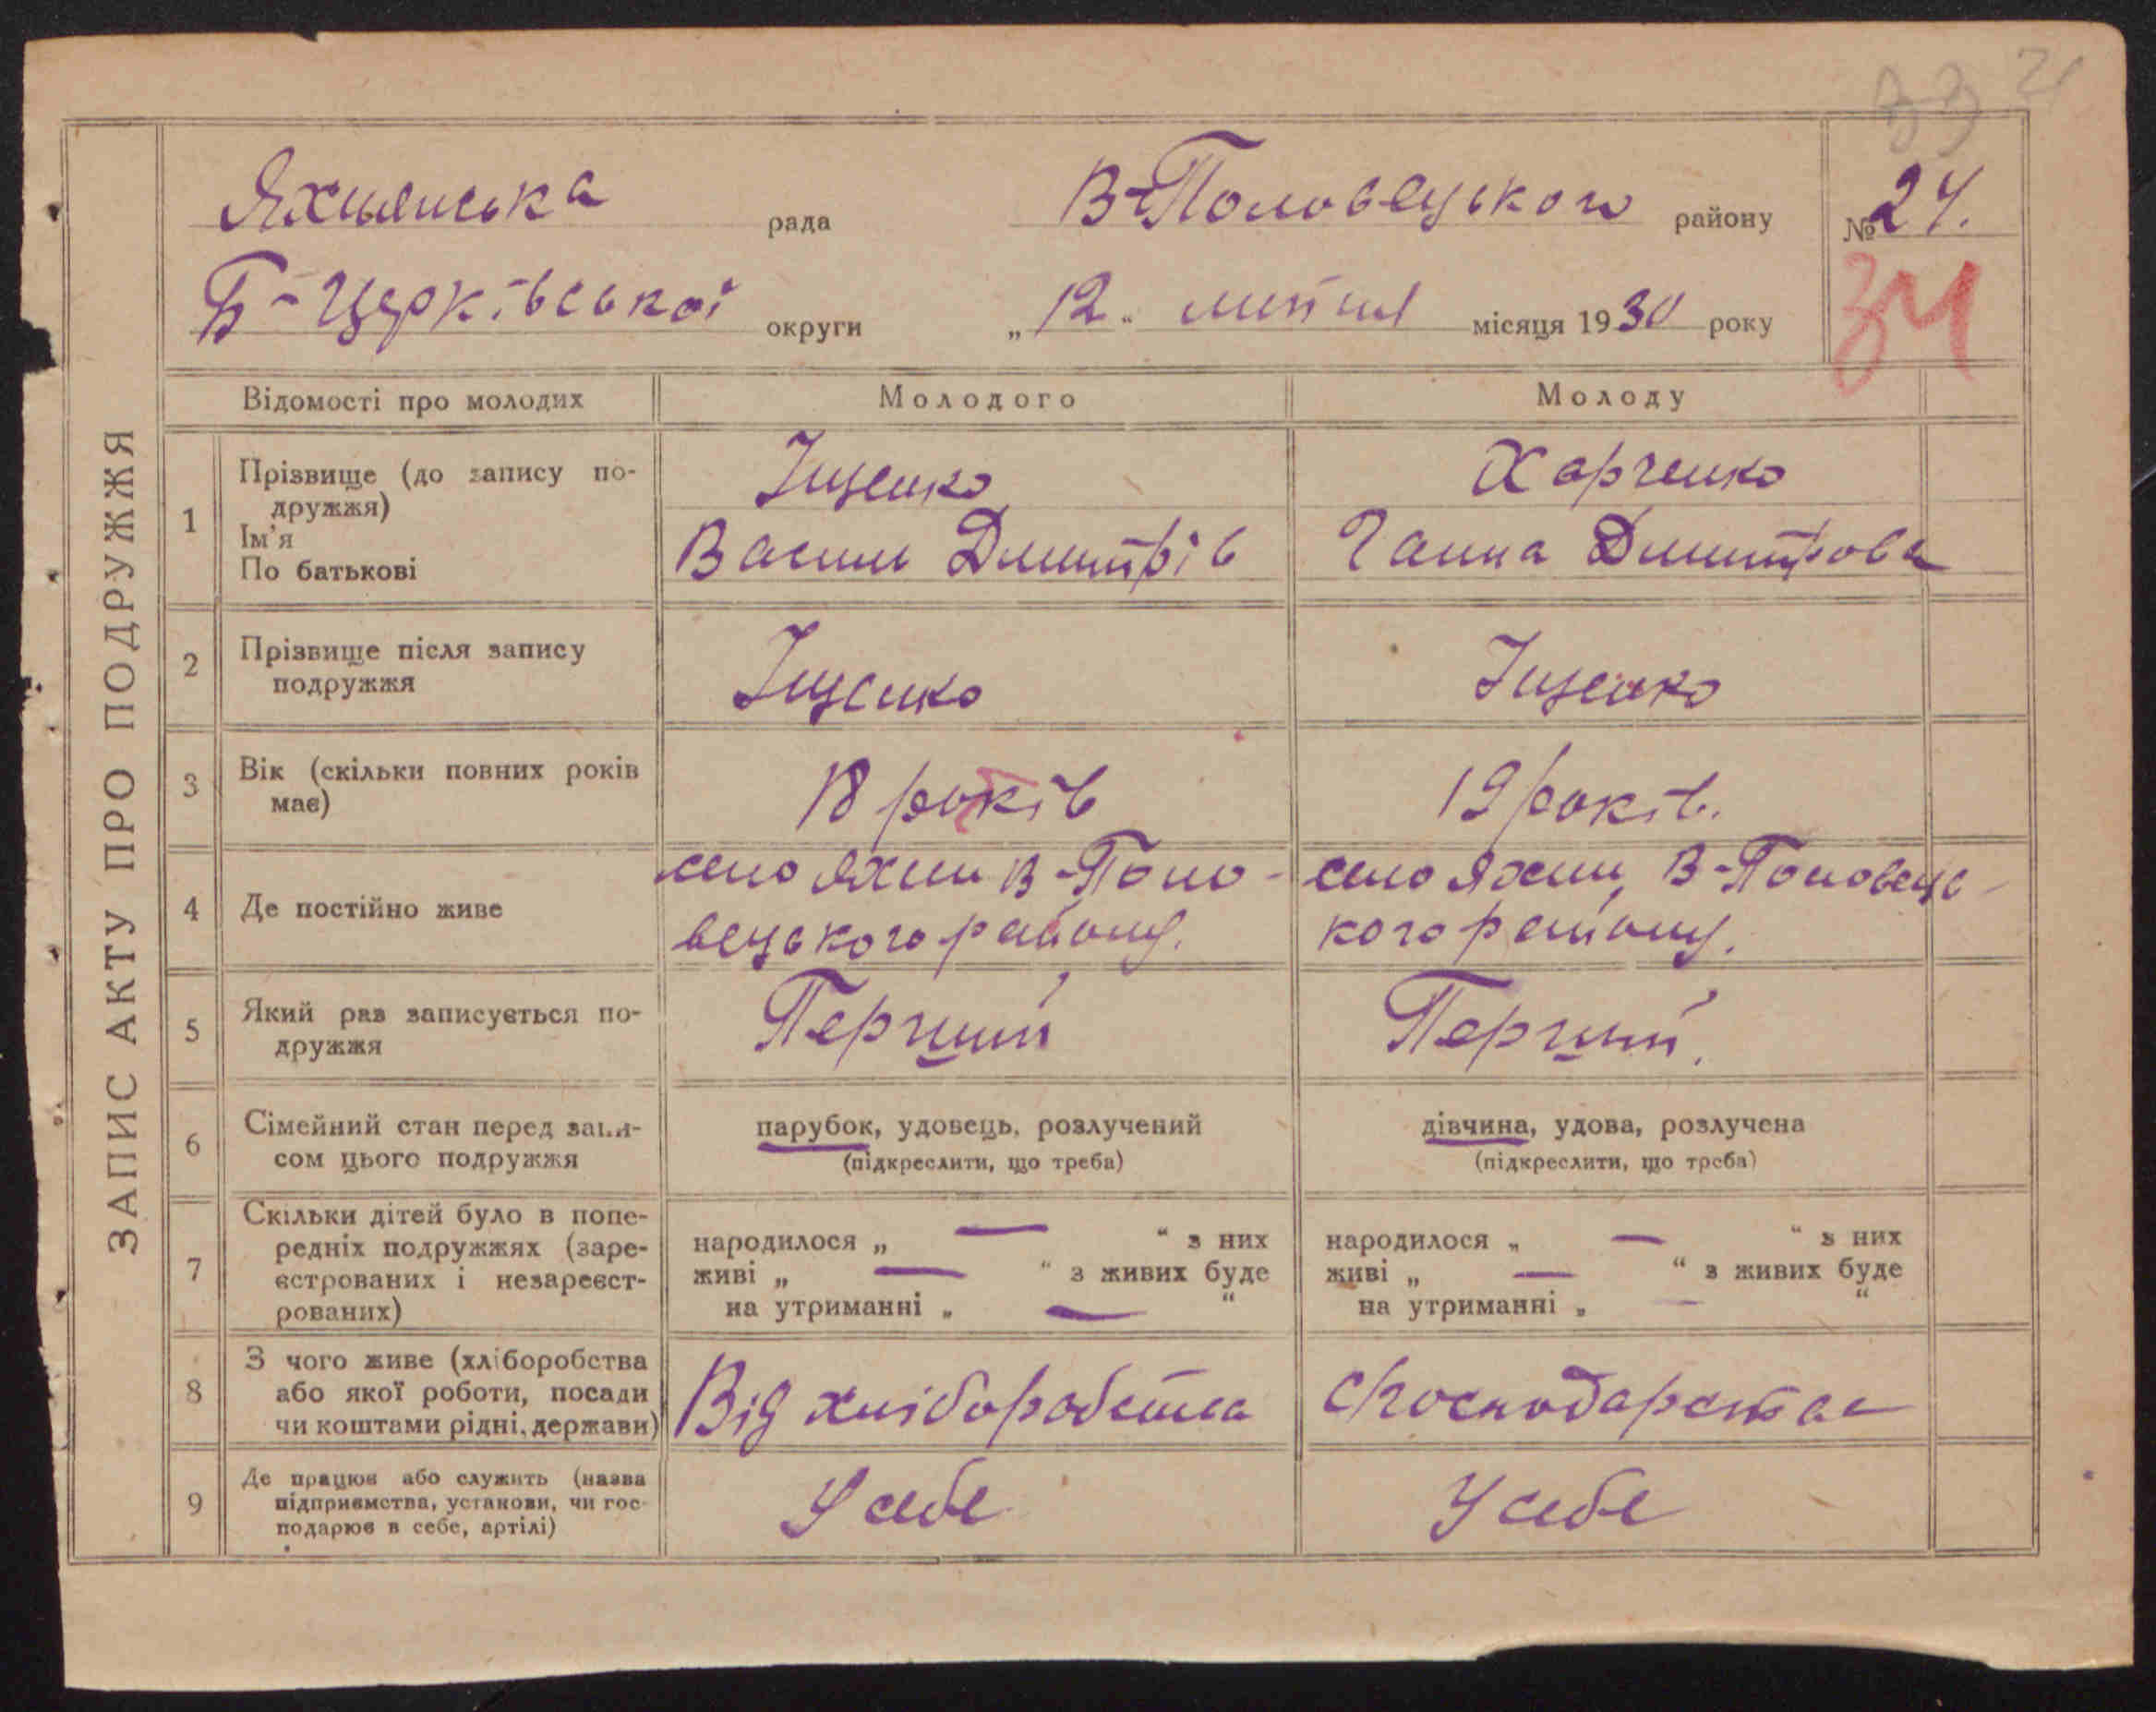 33 21
Яхнянська рада В-Половецького району № 24.
Б-Церківської округи „12" липня місяця 1930 року
34
ЗАПИС АКТУ ПРО ПОДРУЖЖЯ
Відомості про молодих Молодого Молоду
1 Прізвище (до запису по-
дружжя)
Ім'я
По батькові
Іщенко
Василь Дмитрів
Харченко
Ганна Дмитрова
2 Прізвище після запису
подружжя
Іщенко
Іщенко
3 Вік (скільки повних років
має)
18 років
19 років.
4 Де постійно живе
село Яхни В-Поло-
вецького району.
село Яхни, В-Половець-
кого району.
5 Який раз записується по-
дружжя
Перший
Перший.
6 Сімейний стан перед запи-
сом цього подружжя
парубок, удовець, розлучений
(підкреслити, що треба)
дівчина, удова, розлучена
(підкреслити, що треба)
7 Скільки дітей було в попе-
редніх подружжях (заре-
єстрованих і незареєст-
рованих)
народилося „ — " з них
живі „ — " з живих буде
на утриманні „ — "
народилося „ — " з них
живі „ — " з живих буде
на утриманні „ — "
8 З чого живе (хліборобства
або якої роботи, посади
чи коштами рідні, держави)
Від хліборобства
с/господарства
9 Де працює або служить (назва
підприємства, установи, чи гос-
подарює в себе, артілі)
У себе
У себе